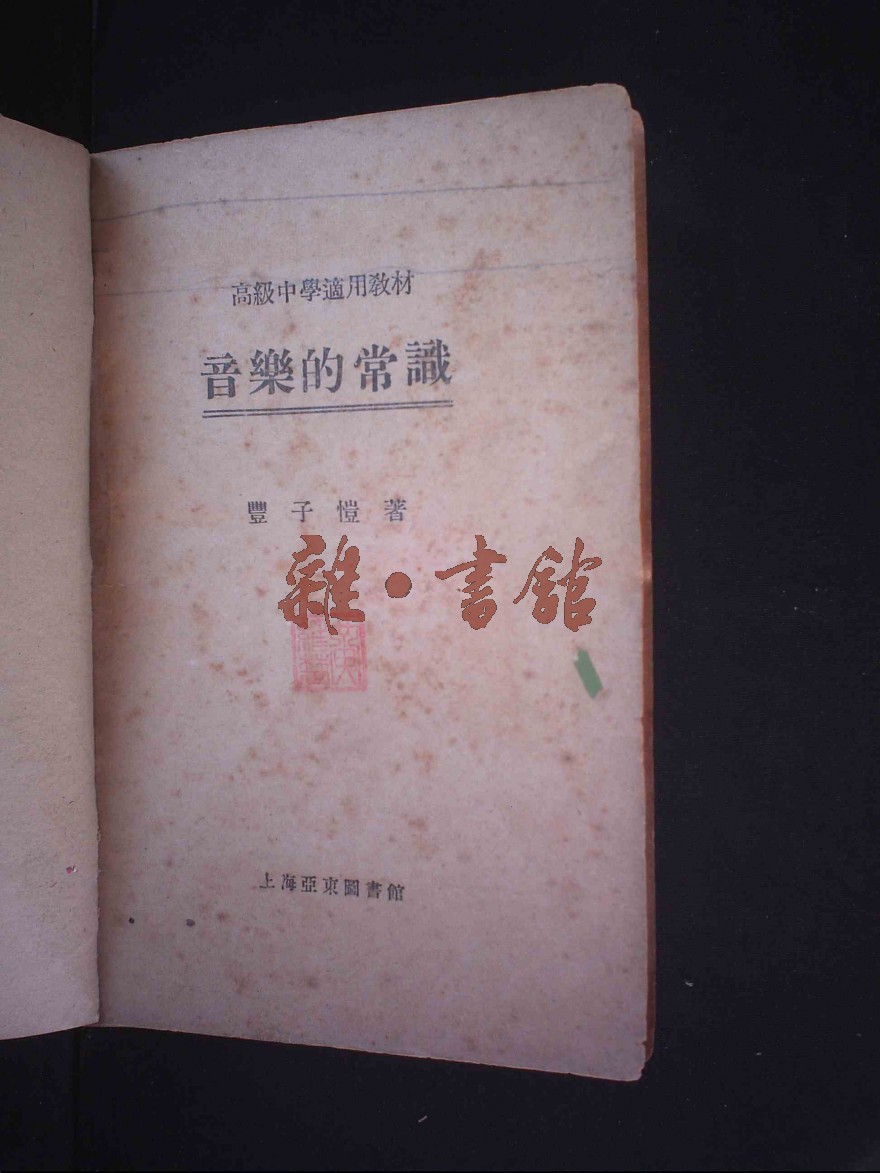 高級中學適用教材
音樂的常識
豐子愷著
雜·書館
上海亞東圖書館